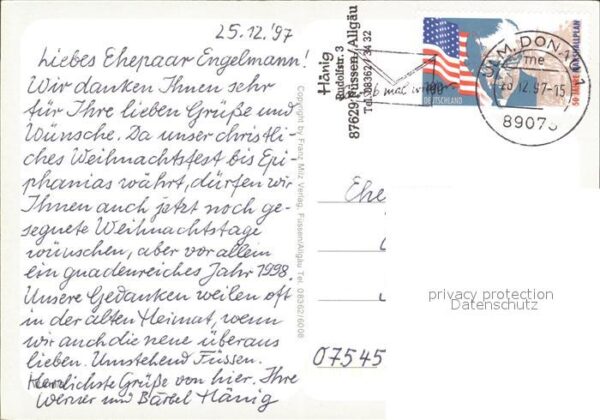 25.12.'97
Liebes Ehepaar Engelmann!
Wir danken Ihnen sehr
für Ihre lieben Grüße und
Wünsche. Da unser christli-
ches Weihnachtsfest bis Epi-
phanias währt, dürfen wir
Ihnen auch jetzt noch ge-
segnete Weihnachtstage
wünschen, aber vor allem
ein gnadenreiches Jahr 1998.
Unsere Gedanken weilen oft
in der alten Heimat, wenn
wir auch die neue überaus
lieben. Umstehend Füssen.
Herzlichste Grüße von hier. Ihre
Werner und Bärbel Hänig
Copyright by Franz Milz Verlag, Füssen/Allgäu Tel. 08362/6008
Hänig
Rudolfstr. 3
87629 Füssen/Allgäu
Tel. 08362/
DEUTSCHLAND
50 JAHRE MARSHALLPLAN
ULM, DONAU
me
12.97-15
8907
Ehe
07545
privacy protection
Datenschutz